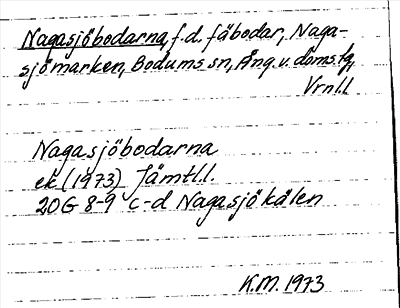 Nagasjöbodarna, f.d. fäbodar, Naga-
sjömarken, Bodums sn, Ång. v. doms.lg,
Vrnl.l
Nagasjöbodarna
ek (1973) Jämtl.l.
20G 8-9 c-d Nagasjökälen
K.M. 1973